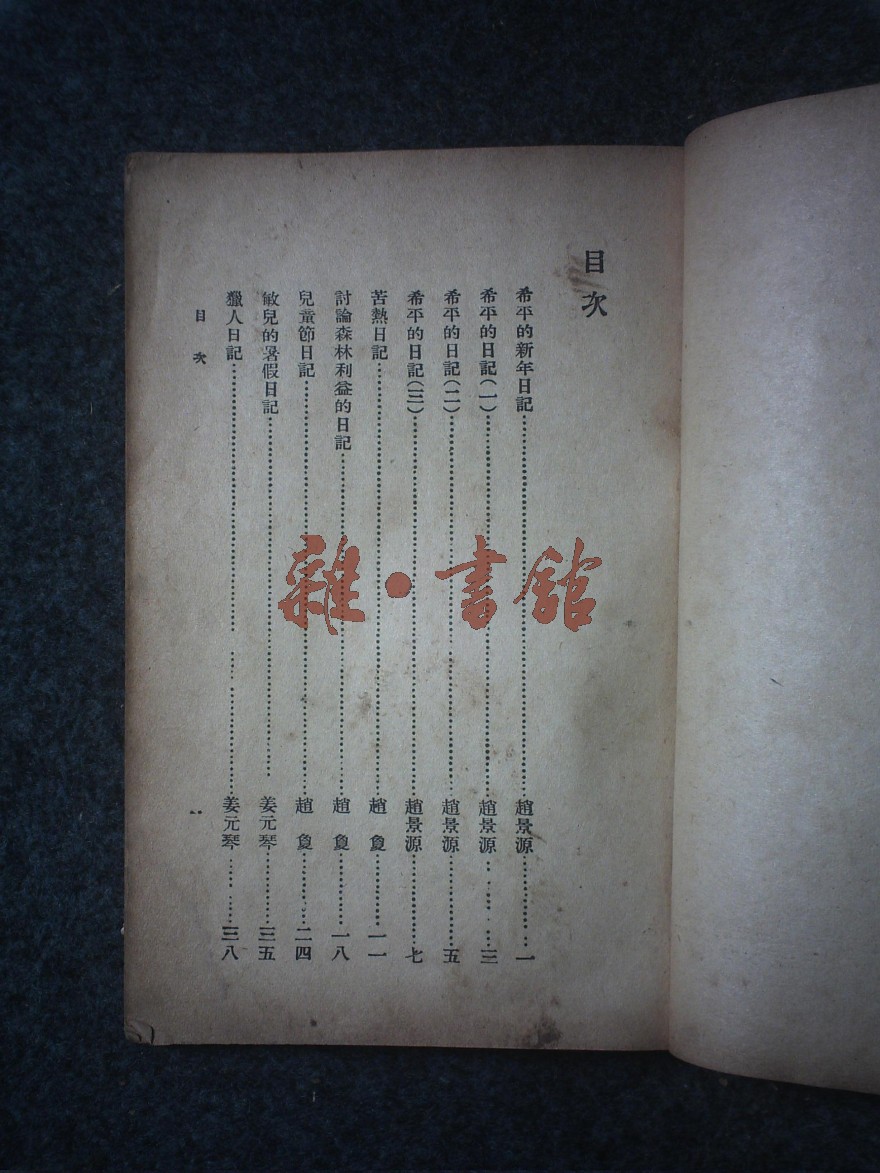 目次
希平的新年日記……趙景源……一
希平的日記(一)……趙景源……三
希平的日記(二)……趙景源……五
希平的日記(三)……趙景源……七
苦熱日記……趙敻……一一
討論森林利益的日記……趙敻……一八
兒童節日記……趙敻……二四
敏兒的暑假日記……姜元琴……三五
獵人日記……姜元琴……三八
目次
雜·書館